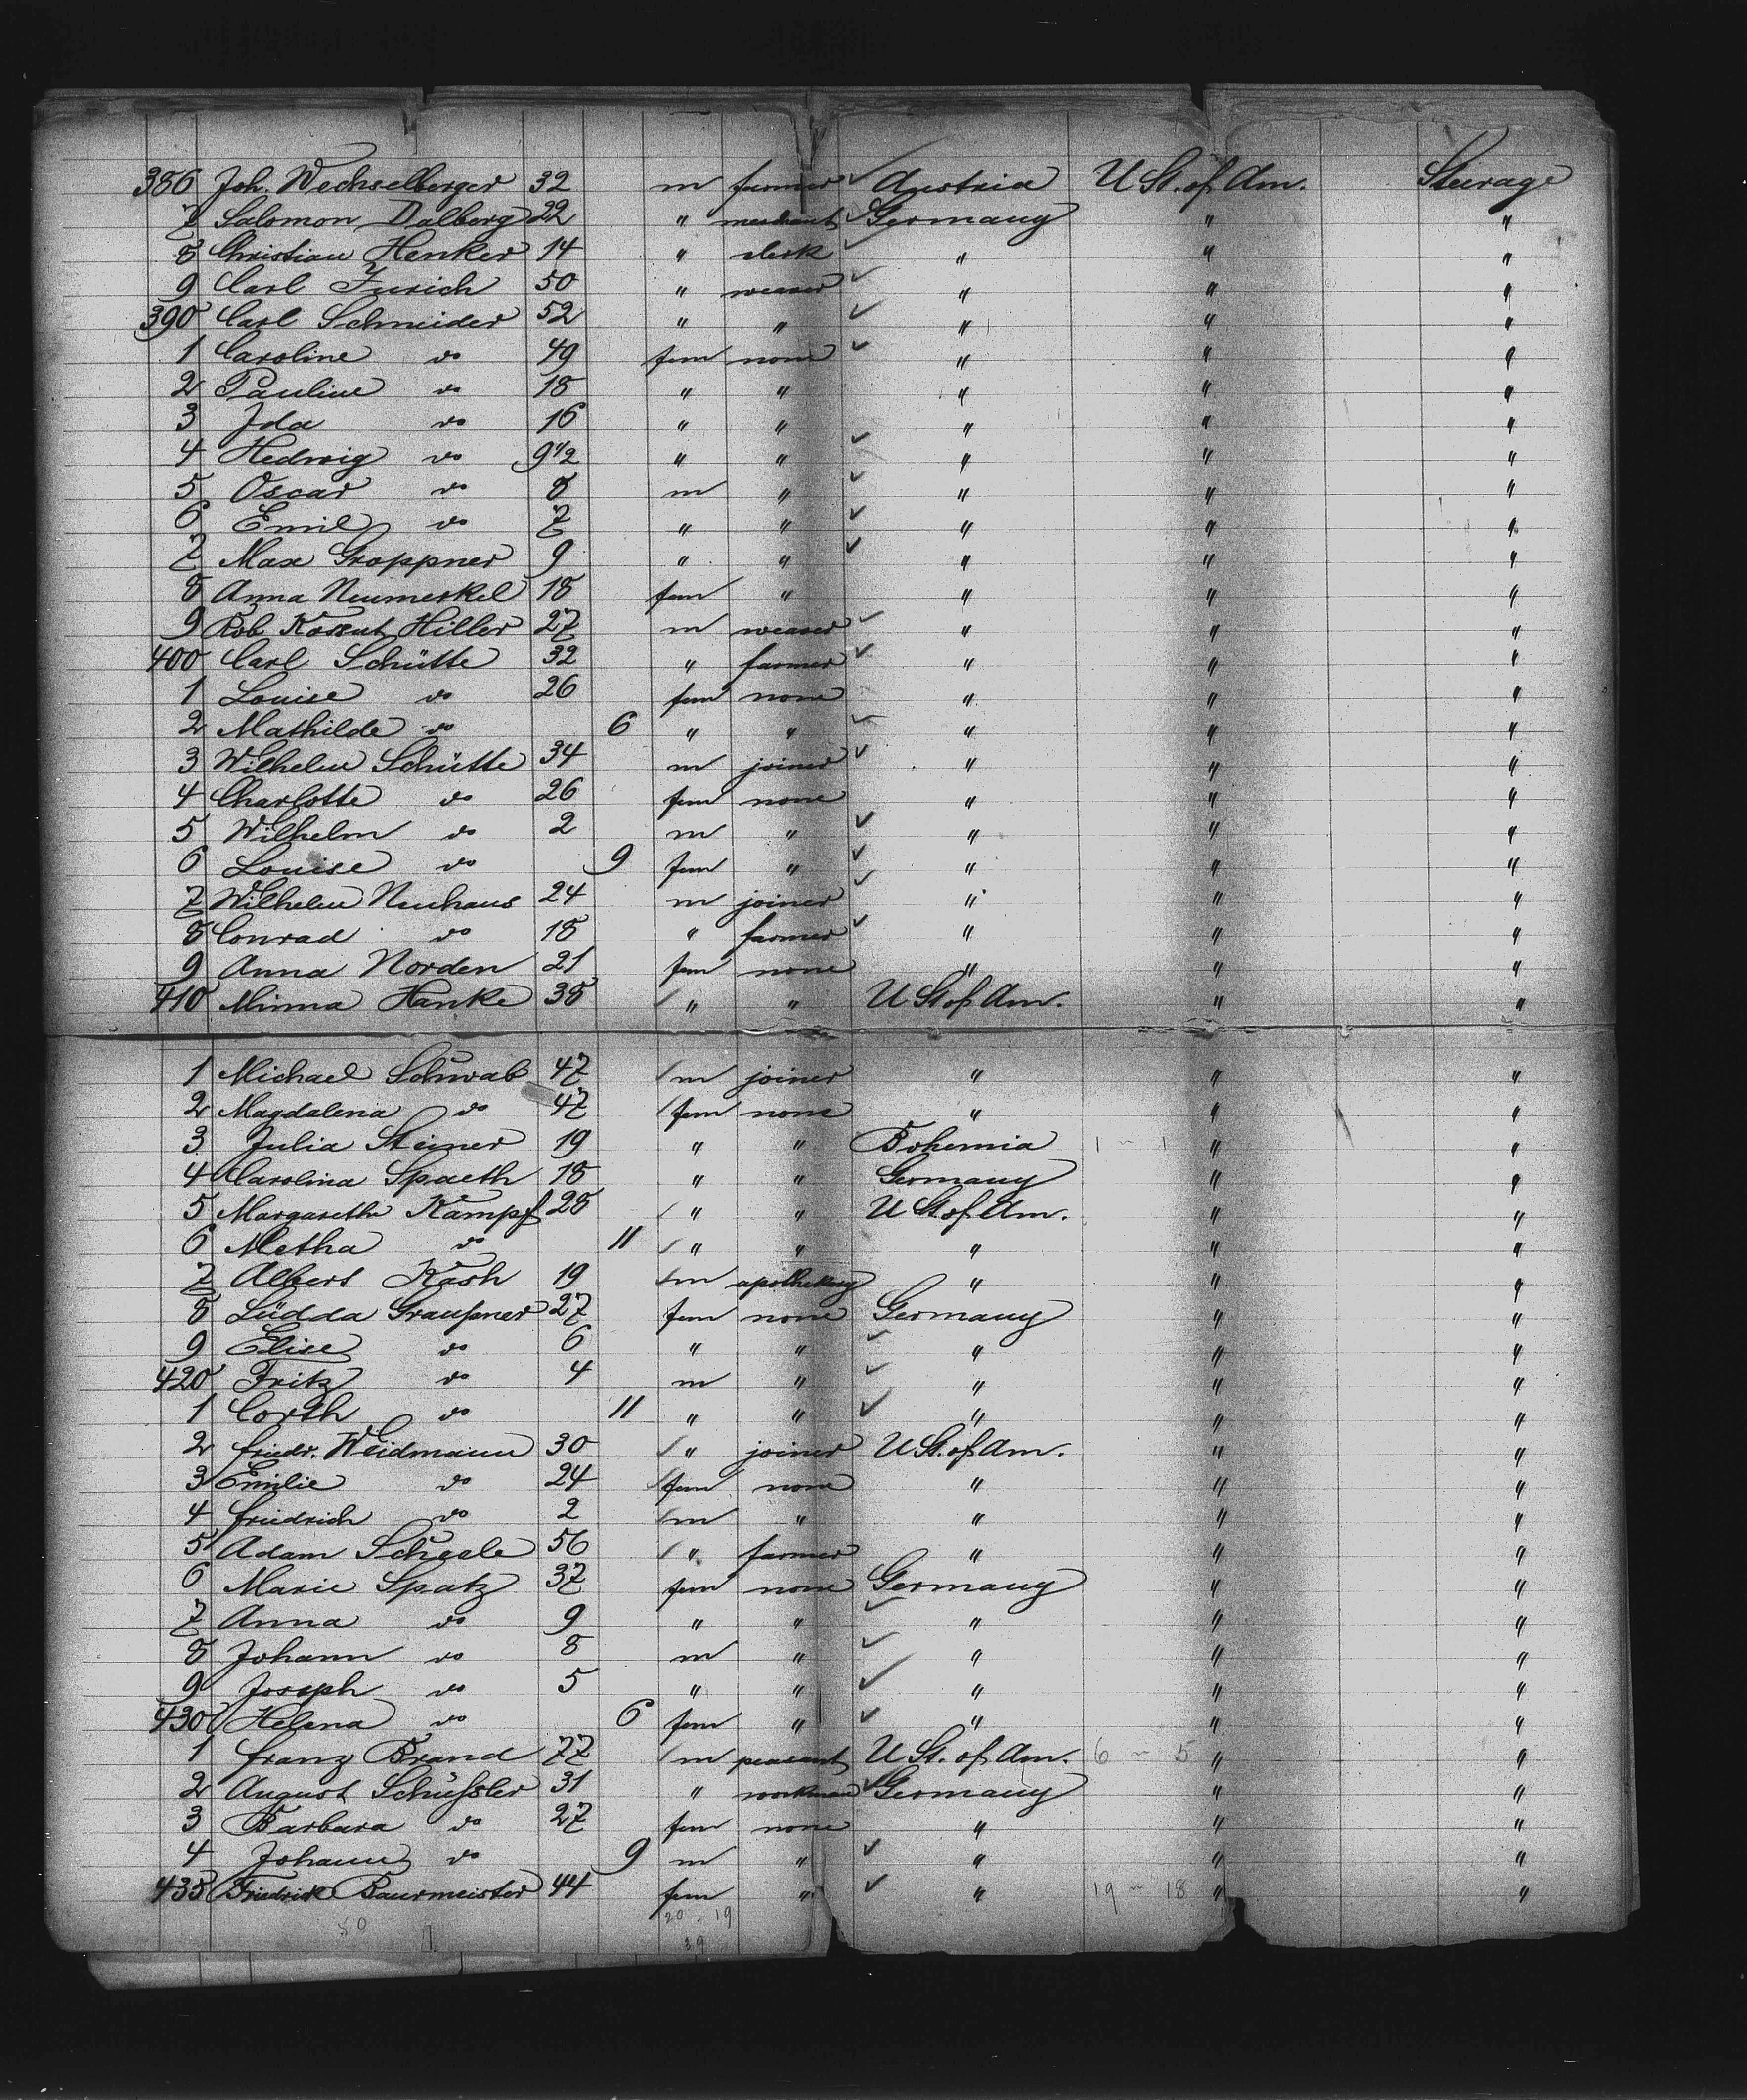 386 Joh. Wechselberger 32 m farmer Austria U St. of Am. Steerage
7 Salomon Dalberg 22 " merchant Germany " "
8 Christian Henker 14 " clerk " " "
9 Carl Jurich 50 " weaver " " "
390 Carl Schneider 52 " " " " "
1 Caroline do 49 fem none " " "
2 Pauline do 18 " " " " "
3 Ida do 16 " " " " "
4 Hedwig do 9 1/2 " " " " "
5 Oscar do 8 m " " " "
6 Emil do 7 " " " " "
7 Max Groppner 9 " " " " "
8 Anna Neumerkel 18 fem " " " "
9 Rob. Hiller 27 m weaver " " "
400 Carl Schütte 32 " farmer " " "
1 Louise do 26 fem none " " "
2 Mathilde do 6 " " " " "
3 Wilhelm Schütte 34 m joiner " " "
4 Charlotte do 26 fem none " " "
5 Wilhelm do 2 m " " " "
6 Louise do 9 fem " " " "
7 Wilhelm Neuhaus 24 m joiner " " "
8 Conrad do 18 " farmer " " "
9 Anna Norden 21 fem none " " "
410 Minna Hanke 38 " " U St of Am. " "
1 Michael Schwab 47 m joiner " " "
2 Magdalena do 47 fem none " " "
3 Julia Steiner 19 " " Bohemia 1 ~ 1 " "
4 Carolina Spaeth 18 " " Germany " "
5 Margarethe Kampf 28 " " U St of Am. " "
6 Metha do 11 " " " " "
7 Albert Kash 19 m apothekary " " "
8 Lüdda Graupner 27 fem none Germany " "
9 Elise do 6 " " " " "
420 Fritz do 4 m " " " "
1 Corth do 11 " " " " "
2 Friedr. Weidmann 30 " joiner U St. of Am. " "
3 Emilie do 24 fem none " " "
4 Friedrich do 2 m " " " "
5 Adam Scheele 56 " farmer " " "
6 Marie Spatz 37 fem none Germany " "
7 Anna do 9 " " " " "
8 Johann do 8 m " " " "
9 Joseph do 5 " " " " "
430 Helena do 6 fem " " " "
1 Franz Brand 77 m peasant U St. of Am. 6 ~ 5 " "
2 August Schüssler 31 " workman Germany " "
3 Barbara do 27 fem none " " "
4 Johann do 9 m " " " "
435 Friedrike Baurmeister 44 fem " " 19 ~ 18 " "
50 20 - 19
39